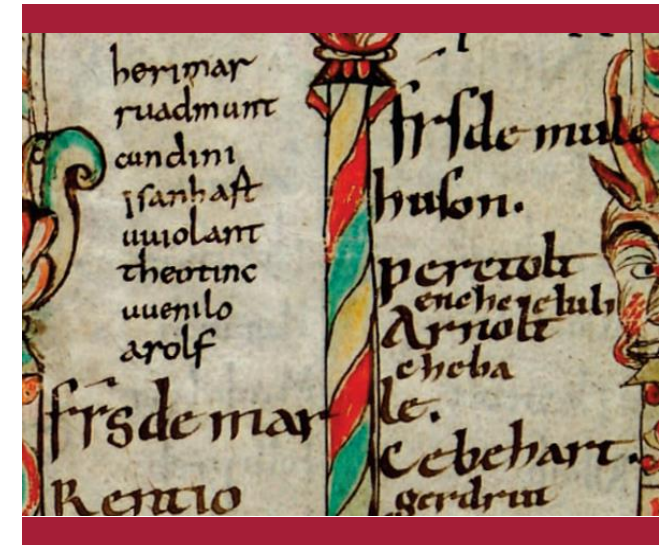 herimar
ruadmunt
cundini
isanhaft
uuiolant
theotinc
uuenilo
arolf
frs de mar
Rentio
frs de mule
huson.
peretolt
Arnolt
cheba
le.
Cebehart.
gerdrut